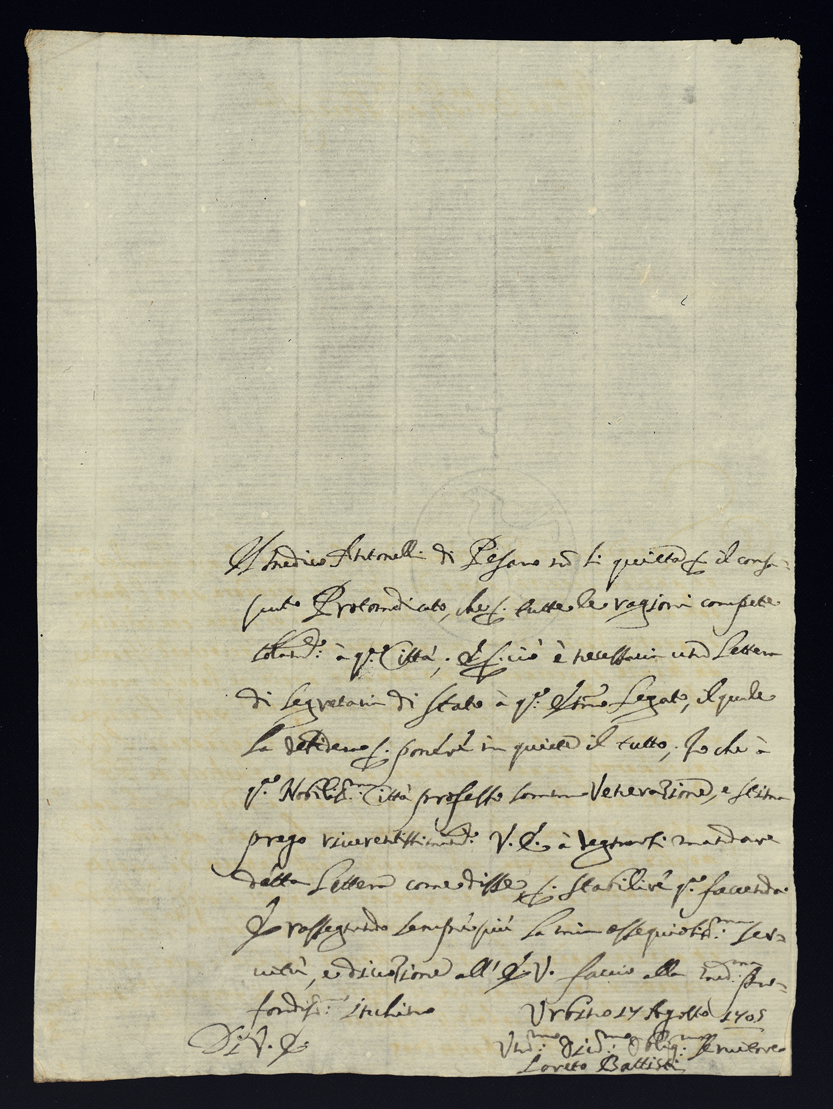 Il Medico Antonelli di Pesaro non si quieta p. il consa-
puto Protomedicato, che p. tutte le ragioni compete
totalm.te à q.ta Città; e p. ciò è necessaria una Lettera
di Segretaria di Stato à q.to E.mo Legato, il quale
la desidera p. ponere in quiete il tutto; Io che à
q.ta Nobiliss.ma Città professo somma Venerazione, e stima
prego riverentissimam.te V. E. à degnarsi mandare
detta Lettera come disse p. stabilire q.ta facenda
E rassegnando sempre più la mia ossequiosiss.ma ser-
vitù, e divozione all' E. V. faccio alla med.ma pro-
fondiss.mo inchino Urbino 17 Agosto 1705
Di V. E.
Um.mo Oblig.mo Servitore
Loreto Battisti